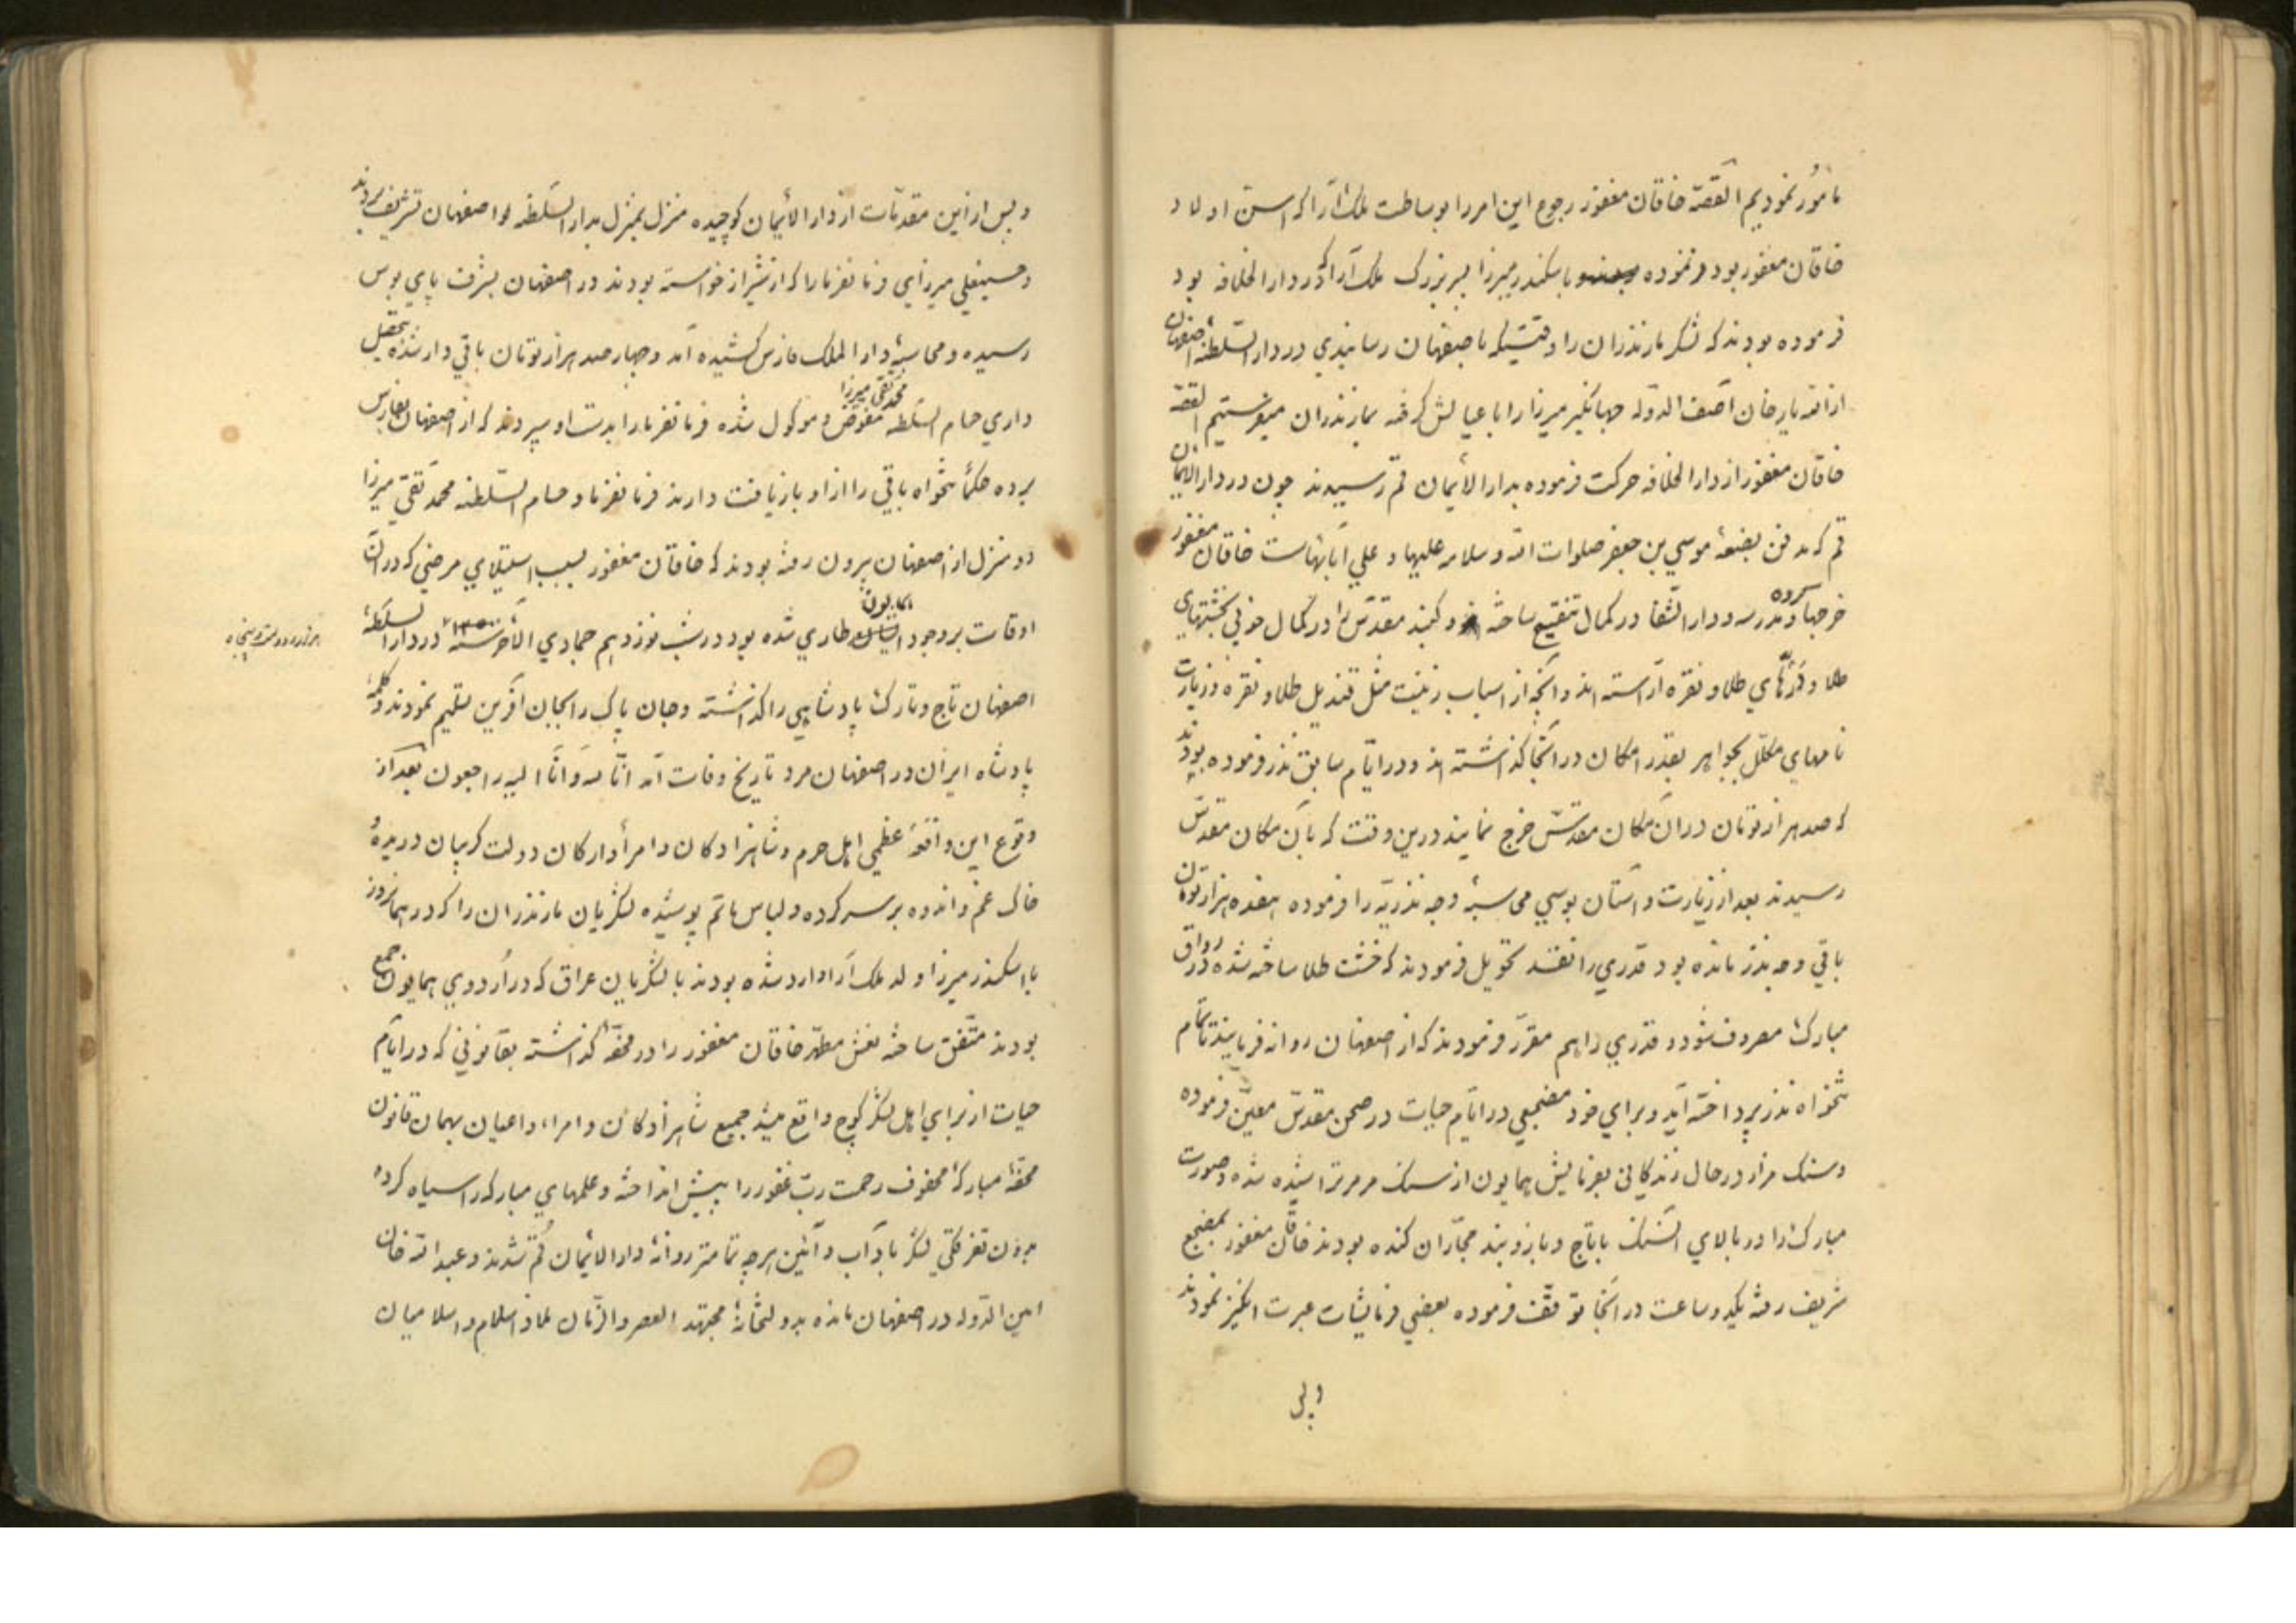 مأمور نمودیم القصّه خاقان مغفور رجوع این امر را بوساطت ملک آرا که اسن اولاد
خاقان مغفور بود فرموده باسکندر میرزا پسر بزرگ ملک آرا که در دار الخلافه بود
فرموده بودند که لشکر مازندران را وقتیکه باصفهان رسانیدی در دار السّلطنهٔ اصفهان
از اللّه یار خان آصف الدّوله جهانگیر میرزا را با عیالش گرفته بمازندران میفرستیم القصّه
خاقان مغفور از دار الخلافه حرکت فرموده بدار الأیمان قم رسیدند چون در دار الایمان
قم که مدفن بضعهٔ موسی بن جعفر صلوات اللّه و سلامه علیها و علی آبائهاست خاقان مغفور
خرجها کرده و مدرسه و دار الشّفا در کمال تنقیح ساخته و گنبد مقدّس را در کمال خوبی بخشتهای
طلا و طلا و نقره آراسته اند و آنچه از اسباب زینت مثل قندیل طلا و نقره و زیارت
نامهای مکلّل بجواهر بقدر امکان در آنجا گذاشته اند و در ایّام سابق نذر فرموده بودند
که صد هزار تومان در آن مکان مقدّس خرج نمایند درین وقت که بآن مکان مقدّس
رسیدند بعد از زیارت و آستان بوسی محاسبهٔ وجه نذریّه را فرموده هفده هزار تومان
باقی وجه نذر مانده بود قدری را نقد تحویل فرمودند که خشت طلا ساخته شده در رواق
مبارک مصروف شود و قدری را هم مقرّر فرمودند که از اصفهان روانه فرمایند تا تمام
تنخواه نذر پرداخته آید و برای خود مضجعی در ایّام حیات در صحن مقدّس معیّن فرموده
و سنک مزار در حال زندگانی بفرمایش همایون از سنک مرمر تراشیده شده و صورت
مبارک را در بالای آنسنک باتاج و بازوبند حجّاران کنده بودند خاقان مغفور بمضجع
شریف رفته یکدو ساعت در آنجا توقّف فرموده بعضی فرمایشات عبرت انگیز نمودند
و پس
و پس از این مقدّمات از دار الأیمان کوچیده منزل بمنزل بدار السّلطنه اصفهان تشریف بردند
و حسینعلی میرزای فرمانفرما را که از شیراز خواسته بودند در اصفهان بشرف پای بوس
رسیده و محاسبهٔ دار الملک فارس کشیده آمد و چهارصد هزار تومان باقی دار شده تحصیل
داری حسام السّلطنه محمد تقی میرزا مفوّض و موکول شده فرمانفرما را بدست او سپردند که از اصفهان بفارس
برده حکماً تنخواه باقی را از او بازیافت دارند فرمانفرما و حسام السّلطنه محمد تقی میرزا
دو منزل از اصفهان بیرون رفته بودند که خاقان مغفور بسبب استیلای مرضی که در آن
اوقات بر وجود همایون طاری شده بود در شب نوزدهم جمادی الأخر سنه ۱۲۵۰ در دار السلطنهٔ
هزار و دویست و پنجاه
اصفهان تاج و تارک پادشاهی را گذاشته و جان پاک را بجان آفرین تسلیم نمودند و کلمهٔ
پادشاه ایران در اصفهان مرد تاریخ وفات آمد انّا لله و انّا الیه راجعون بعد از
وقوع این واقعهٔ عظمی اهل حرم و شاهزادکان و امرأ و ارکان دولت گریبان دریده و
خاک غم و اندوه بر سر کرده و لباس ماتم پوشیده لشکریان مازندران را که در همانروز
با اسکندر میرزا ولد ملک آرا وارد شده بودند با لشکریان عراق که در اردوی همایون جمع
بودند متّفق ساخته نعش مطهّر خاقان مغفور را در محفّه گذاشته بقانونی که در ایّام
حیات از برای اهل لشکر کوچ واقع میشد جمیع شاهزادکان و امراء و اعیان بهمان قانون
محفّهٔ مبارکهٔ محفوف رحمت ربّ غفور را بپیش انداخته و علمهای مبارکه را سیاه کرده
بدون تفرقگی لشکر بآداب و آئین هرچه تمامتر روانهٔ دار الایمان قُم شدند و عبد اللّه خان
امین الدّوله در اصفهان مانده بدولتخانهٔ مجتهد العصر والزّمان ملاذ اسلام و اسلامیان